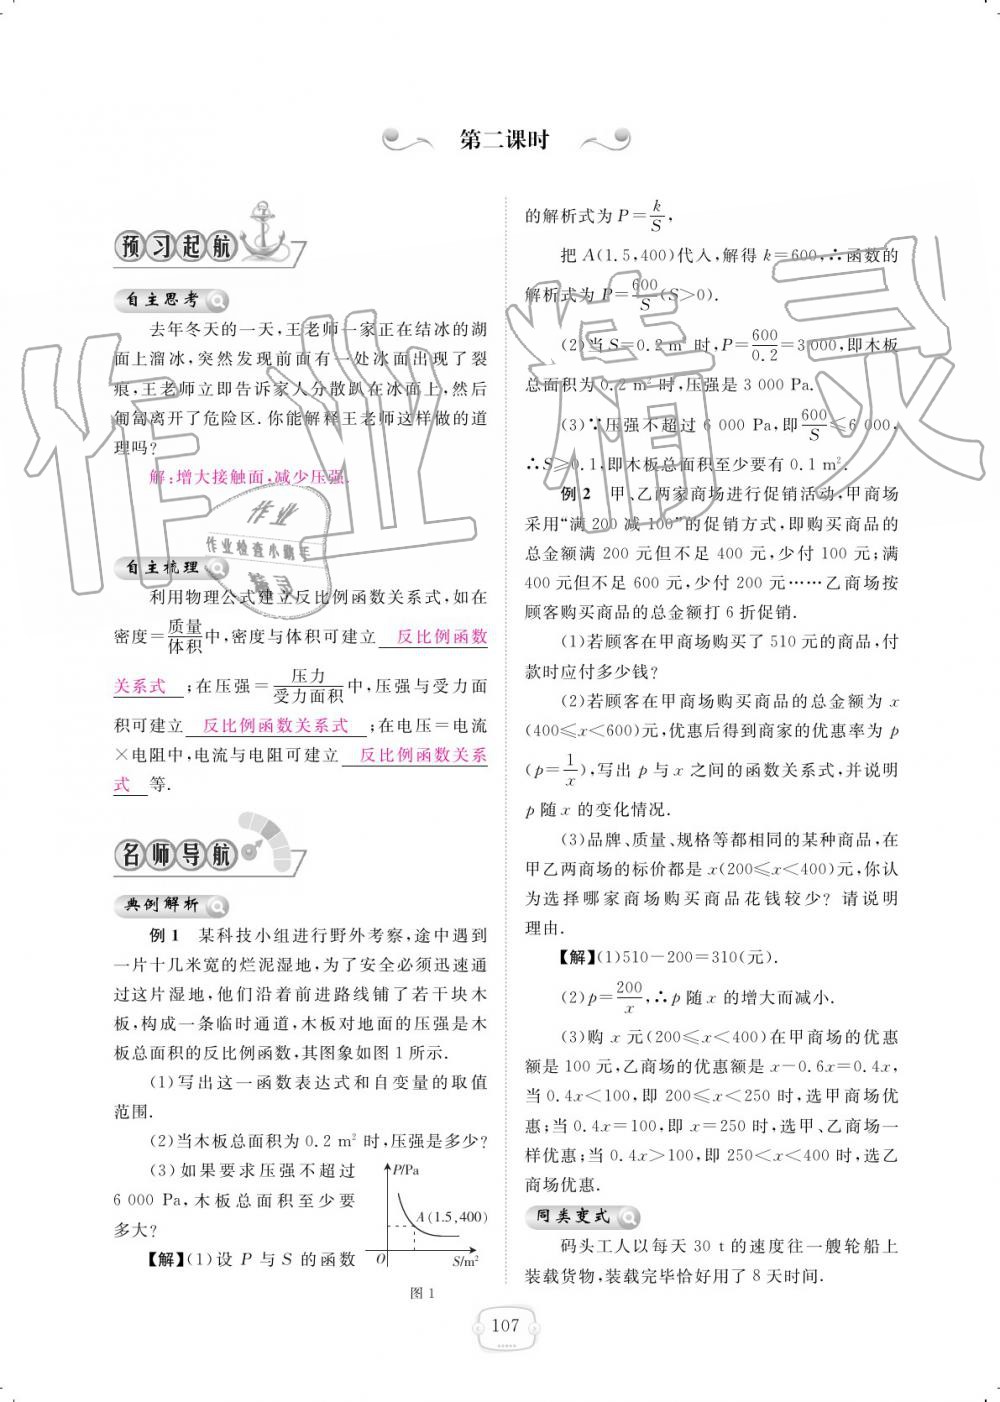 第二课时
预习起航
自主思考
去年冬天的一天,王老师一家正在结冰的湖
面上溜冰,突然发现前面有一处冰面出现了裂
痕,王老师立即告诉家人分散趴在冰面上,然后
匍匐离开了危险区.你能解释王老师这样做的道
理吗?
解:增大接触面,减少压强.
自主梳理
利用物理公式建立反比例函数关系式,如在
密度=质量/体积中,密度与体积可建立 反比例函数
关系式 ;在压强=压力/受力面积中,压强与受力面
积可建立 反比例函数关系式 ;在电压=电流
×电阻中,电流与电阻可建立 反比例函数关系
式 等.
名师导航
典例解析
例1 某科技小组进行野外考察,途中遇到
一片十几米宽的烂泥湿地,为了安全必须迅速通
过这片湿地,他们沿着前进路线铺了若干块木
板,构成一条临时通道,木板对地面的压强是木
板总面积的反比例函数,其图象如图1所示.
(1)写出这一函数表达式和自变量的取值
范围.
(2)当木板总面积为0.2 m²时,压强是多少?
(3)如果要求压强不超过
6 000 Pa,木板总面积至少要
多大?
【解】(1)设 P 与 S 的函数
P/Pa
A(1.5,400)
O
S/m²
图1
的解析式为P=k/S,
把A(1.5,400)代入,解得k=600,∴函数的
解析式为P=600/S(S>0).
(2)当S=0.2 m²时,P=600/0.2=3 000,即木板
总面积为0.2 m²时,压强是3 000 Pa.
(3)∵压强不超过6 000 Pa,即600/S≤6 000,
∴S≥0.1,即木板总面积至少要有0.1 m².
例2 甲、乙两家商场进行促销活动,甲商场
采用“满200减100”的促销方式,即购买商品的
总金额满200元但不足400元,少付100元;满
400元但不足600元,少付200元……乙商场按
顾客购买商品的总金额打6折促销.
(1)若顾客在甲商场购买了510元的商品,付
款时应付多少钱?
(2)若顾客在甲商场购买商品的总金额为x
(400≤x<600)元,优惠后得到商家的优惠率为p
(p=1/x),写出p与x之间的函数关系式,并说明
p随x的变化情况.
(3)品牌、质量、规格等都相同的某种商品,在
甲乙两商场的标价都是x(200≤x<400)元,你认
为选择哪家商场购买商品花钱较少?请说明
理由.
【解】(1)510-200=310(元).
(2)p=200/x,∴p随x的增大而减小.
(3)购x元(200≤x<400)在甲商场的优惠
额是100元,乙商场的优惠额是x-0.6x=0.4x,
当0.4x<100,即200≤x<250时,选甲商场优
惠;当0.4x=100,即x=250时,选甲、乙商场一
样优惠;当0.4x>100,即250<x<400时,选乙
商场优惠.
同类变式
码头工人以每天30 t的速度往一艘轮船上
装载货物,装载完毕恰好用了8天时间.
107
作业精灵
作业
作业检查小助手
精灵